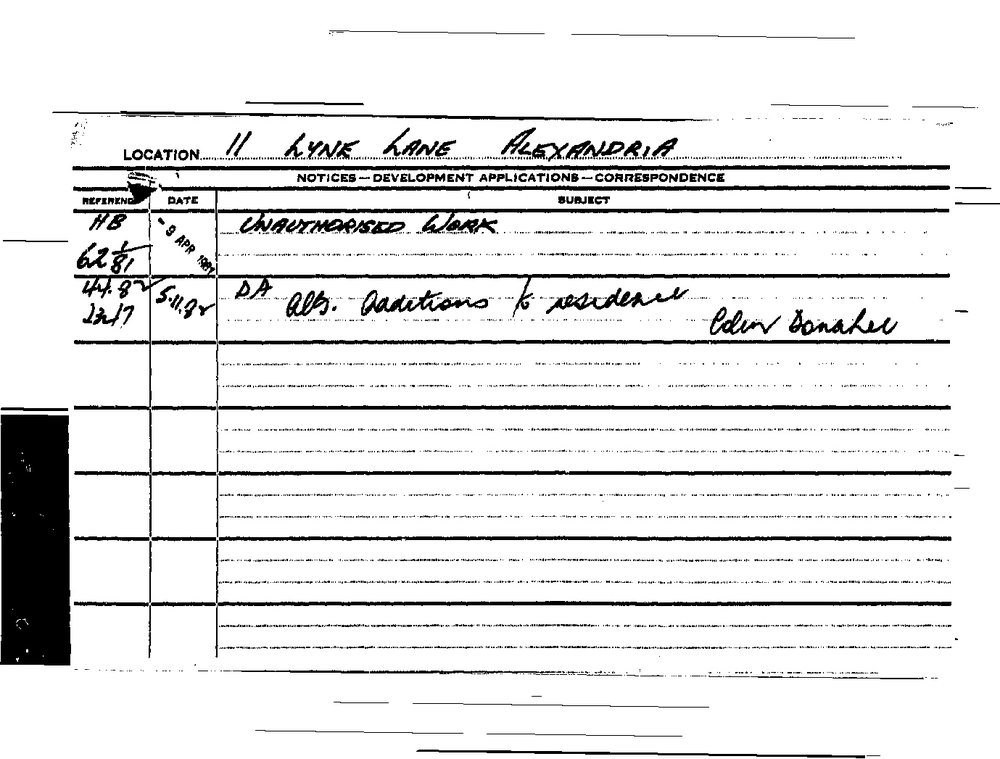 LOCATION 11 LYNE LANE ALEXANDRIA
NOTICES — DEVELOPMENT APPLICATIONS — CORRESPONDENCE
REFERENCE DATE SUBJECT
HB - 9 APR 1981 UNAUTHORISED WORK
62 1/81
44.82 5.11.82 DA Alts. Additions to residence
2347 Colin Donahee